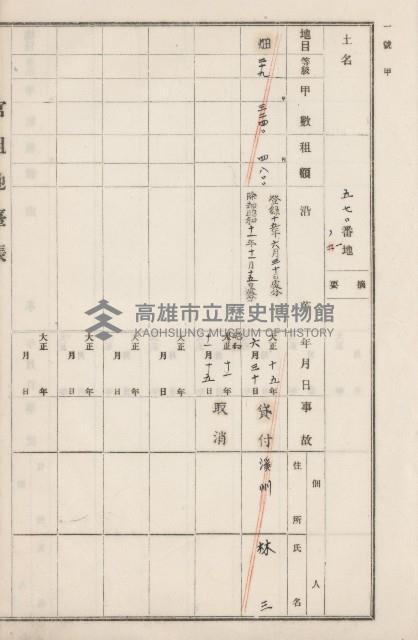 一號甲
土名
五七〇番地
摘要
地目
等級
甲數
租額
沿革
年月日
事故
佃人
住所
氏名
畑
三四〇
四八〇〇
登錄十五年六月三十日處分
除却昭和十一年十一月十五日處分
大正十五年六月三十日
貸付
溪州
林三
大正 昭和 十一年十一月十五日
取消
大正 年 月 日
大正 年 月 日
大正 年 月 日
大正 年 月 日
官租地臺帳
高雄市立歷史博物館
KAOHSIUNG MUSEUM OF HISTORY